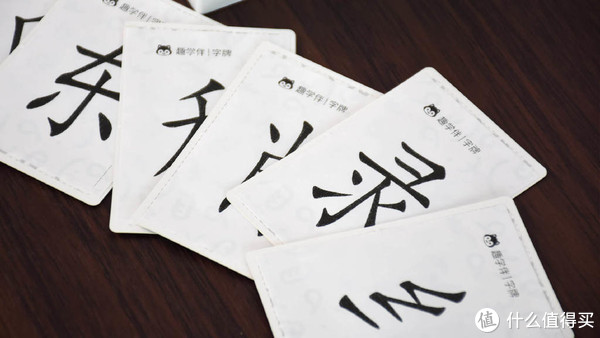 东
趣学伴|字牌
趣学伴|字牌
趣学伴|字牌
录
趣学伴|字牌
值 什么值得买